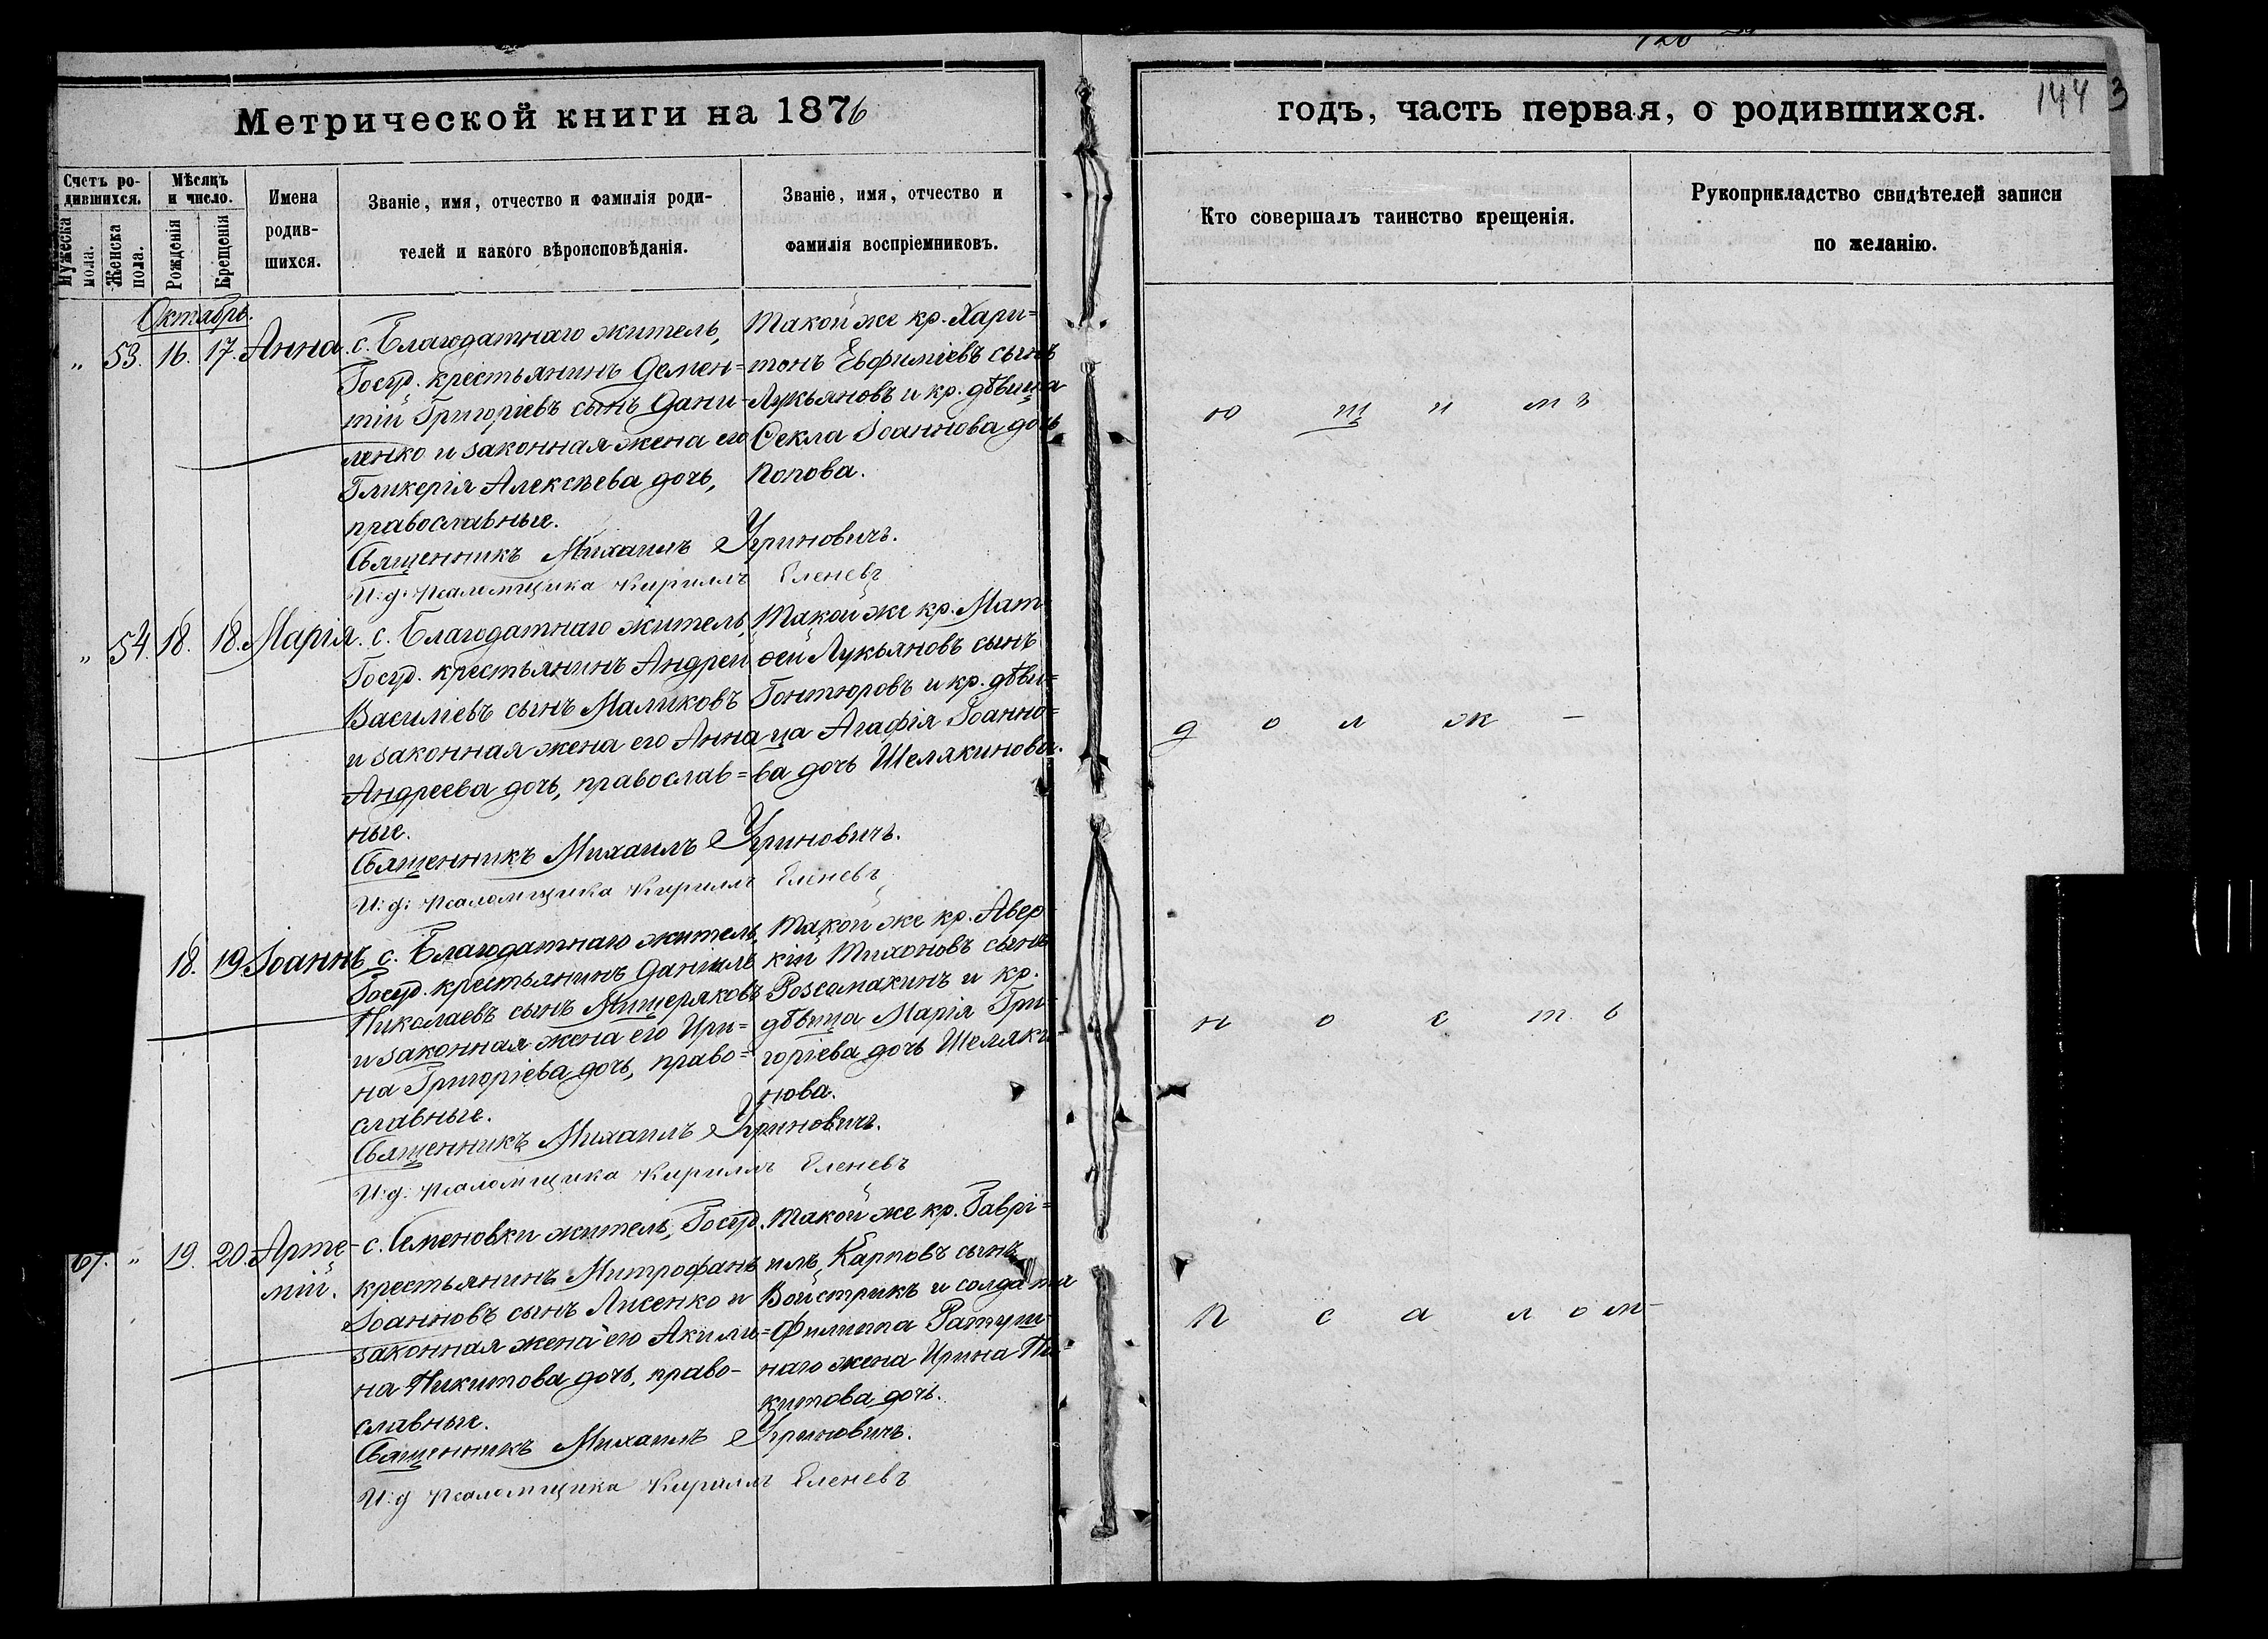 Метрической книги на 1876
годъ, часть первая, о родившихся.
144
3
Счетъ ро-
дившихся.
Мужеска
пола.
Женска
пола.
Мѣсяцъ
и число.
Рожденія
Крещенія
Имена
родив-
шихся.
Званіе, имя, отчество и фамилія роди-
телей и какого вѣроисповѣданія.
Званіе, имя, отчество и
фамилія воспріемниковъ.
Кто совершалъ таинство крещенія.
Рукоприкладство свидѣтелей записи
по желанію.
Октябрь.
„ 53. 16. 17. Анна.
с. Благодатнаго житель,
Госуд. крестьянинъ Демен=
тій Григоріевъ сынъ Дани-
ленко и законная жена его
Гликерія Алексѣева дочь,
православные.
Такой же кр. Хари=
тонъ Евфиміевъ сынъ
Лукьяновъ и кр. дѣвица
Ѳекла Іоаннова дочь
Попова.
Священникъ Михаилъ Угриновичъ.
И: д: псаломщика Кириллъ Еленевъ
ю щ и мъ
„ 54. 18. 18. Марія.
с. Благодатнаго житель,
Госуд. крестьянинъ Андрей
Василіевъ сынъ Маликовъ
и законная жена его Анна
Андреева дочь, православ=
ные.
Такой же кр. Мат=
ѳей Лукьяновъ сынъ
Гонтюровъ и кр. дѣви=
ца Агафія Іоанно=
ва дочь Шелякинова.
Священникъ Михаилъ Угриновичъ.
И: д: псаломщика Кириллъ Еленевъ
д о л ж -
18. 19. Іоаннъ
с. Благодатнаго житель,
Госуд. крестьянинъ Даніилъ
Николаевъ сынъ Мищеряковъ
и законная жена его Ири=
на Григоріева дочь, право=
славные.
Такой же кр. Авер-
кій Тихоновъ сынъ
Розсамахинъ и кр.
дѣвица Марія Гри=
горіева дочь Шеляки-
нова.
Священникъ Михаилъ Угриновичъ.
И: д: псаломщика Кириллъ Еленевъ
н о с т ь
67. „ 19. 20. Арте-
мій.
с. Семеновки житель, Госуд.
крестьянинъ Митрофанъ
Іоанновъ сынъ Лисенко и
законная жена его Акили=
на Никитова дочь, право-
славные.
Такой же кр. Гаврі=
илъ Карповъ сынъ
Войстрикъ и солдата
Филиппа Ратуш-
наго жена Ирина Ни-
китова дочь.
Священникъ Михаилъ Угриновичъ.
И: д псаломщика Кириллъ Еленевъ
п с а л о м-